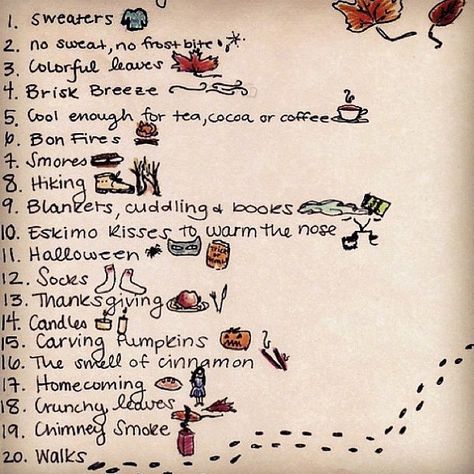 1. Sweaters
2. no sweat, no frostbite
3. Colorful leaves
4. Brisk Breeze
5. Cool enough for tea, cocoa or coffee
6. Bon Fires
7. Smores
8. Hiking
9. Blankets, cuddling & books
10. Eskimo Kisses to warm the nose
11. Halloween
12. Socks
13. Thanksgiving
14. Candles
15. Carving Pumpkins
16. The smell of cinnamon
17. Homecoming
18. Crunchy leaves
19. Chimney Smoke
20. Walks